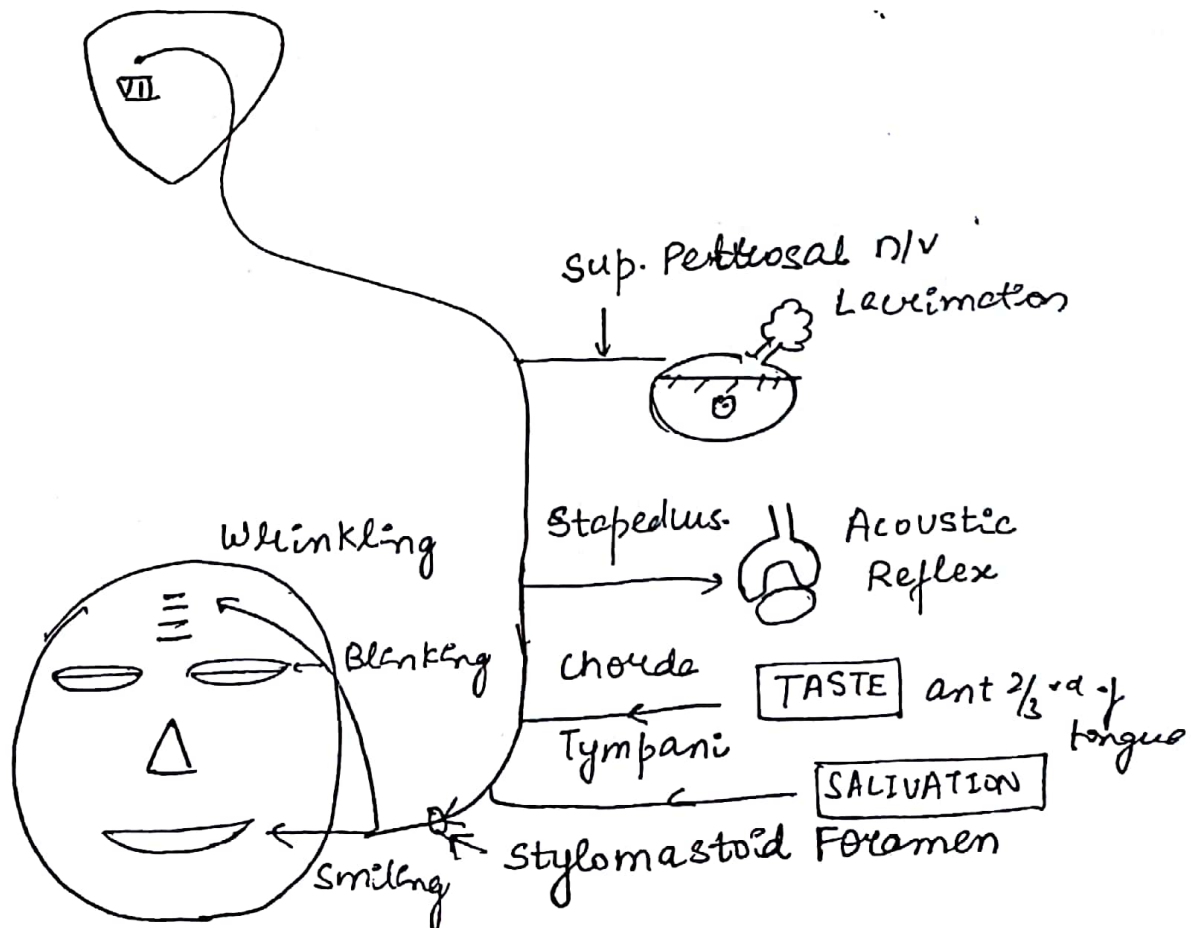 VII
Sup. Pettrosal n/v
Lacrimation
Stapedius.
Acoustic
Reflex
Wrinkling
Blinking
Chorda
Tympani
TASTE
ant 2/3rd of
tongue
SALIVATION
Stylomastoid Foramen
Smiling